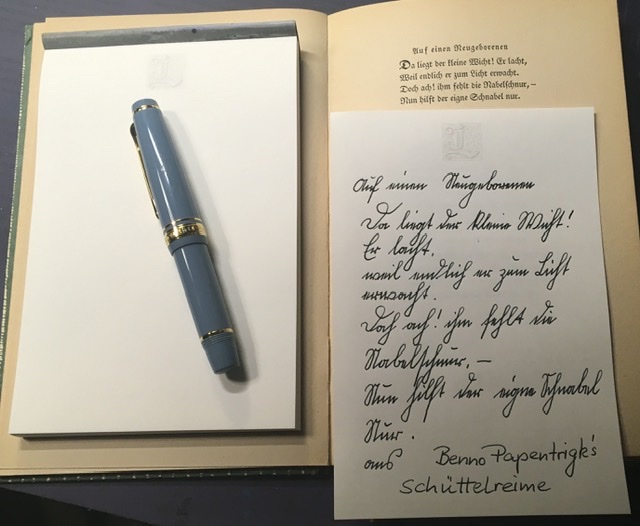 Auf einen Neugeborenen
Da liegt der kleine Wicht! Er lacht,
Weil endlich er zum Licht erwacht.
Doch ach! ihm fehlt die Nabelschnur, –
Nun hilft der eigne Schnabel nur.
L
L
Auf einen Neugeborenen
Da liegt der kleine Wicht!
Er lacht,
weil endlich er zum Licht
erwacht.
Doch ach! ihm fehlt die
Nabelschnur, –
Nun hilft der eigne Schnabel
Nur.
aus Benno Papentrigk's
Schüttelreime